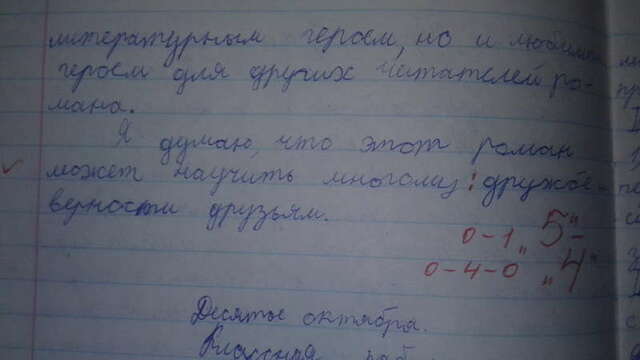 литературным героем, но и любимым
героем для других читателей ро-
мана.
Я думаю, что этот роман
может научить многому: дружбе,
верности друзьям.
0-1 „5"-
0-4-0 „4"
Десятое октября.
Классная раб